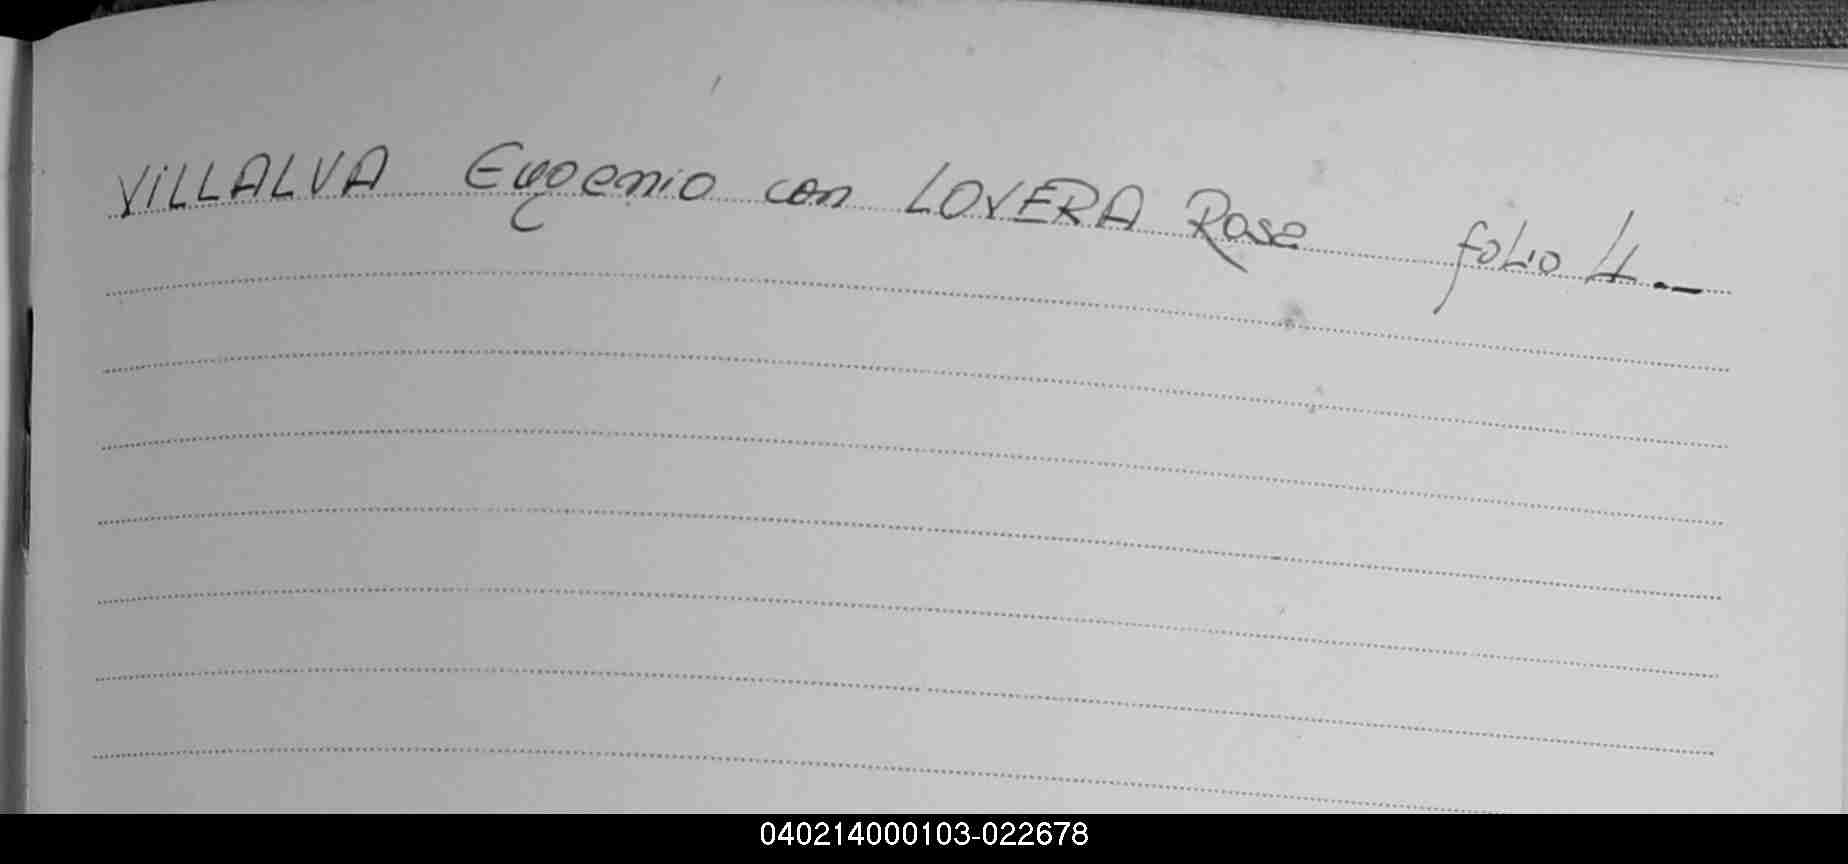 VILLALVA Eugenio con LOVERA Rosa folio 4.-
040214000103-022678